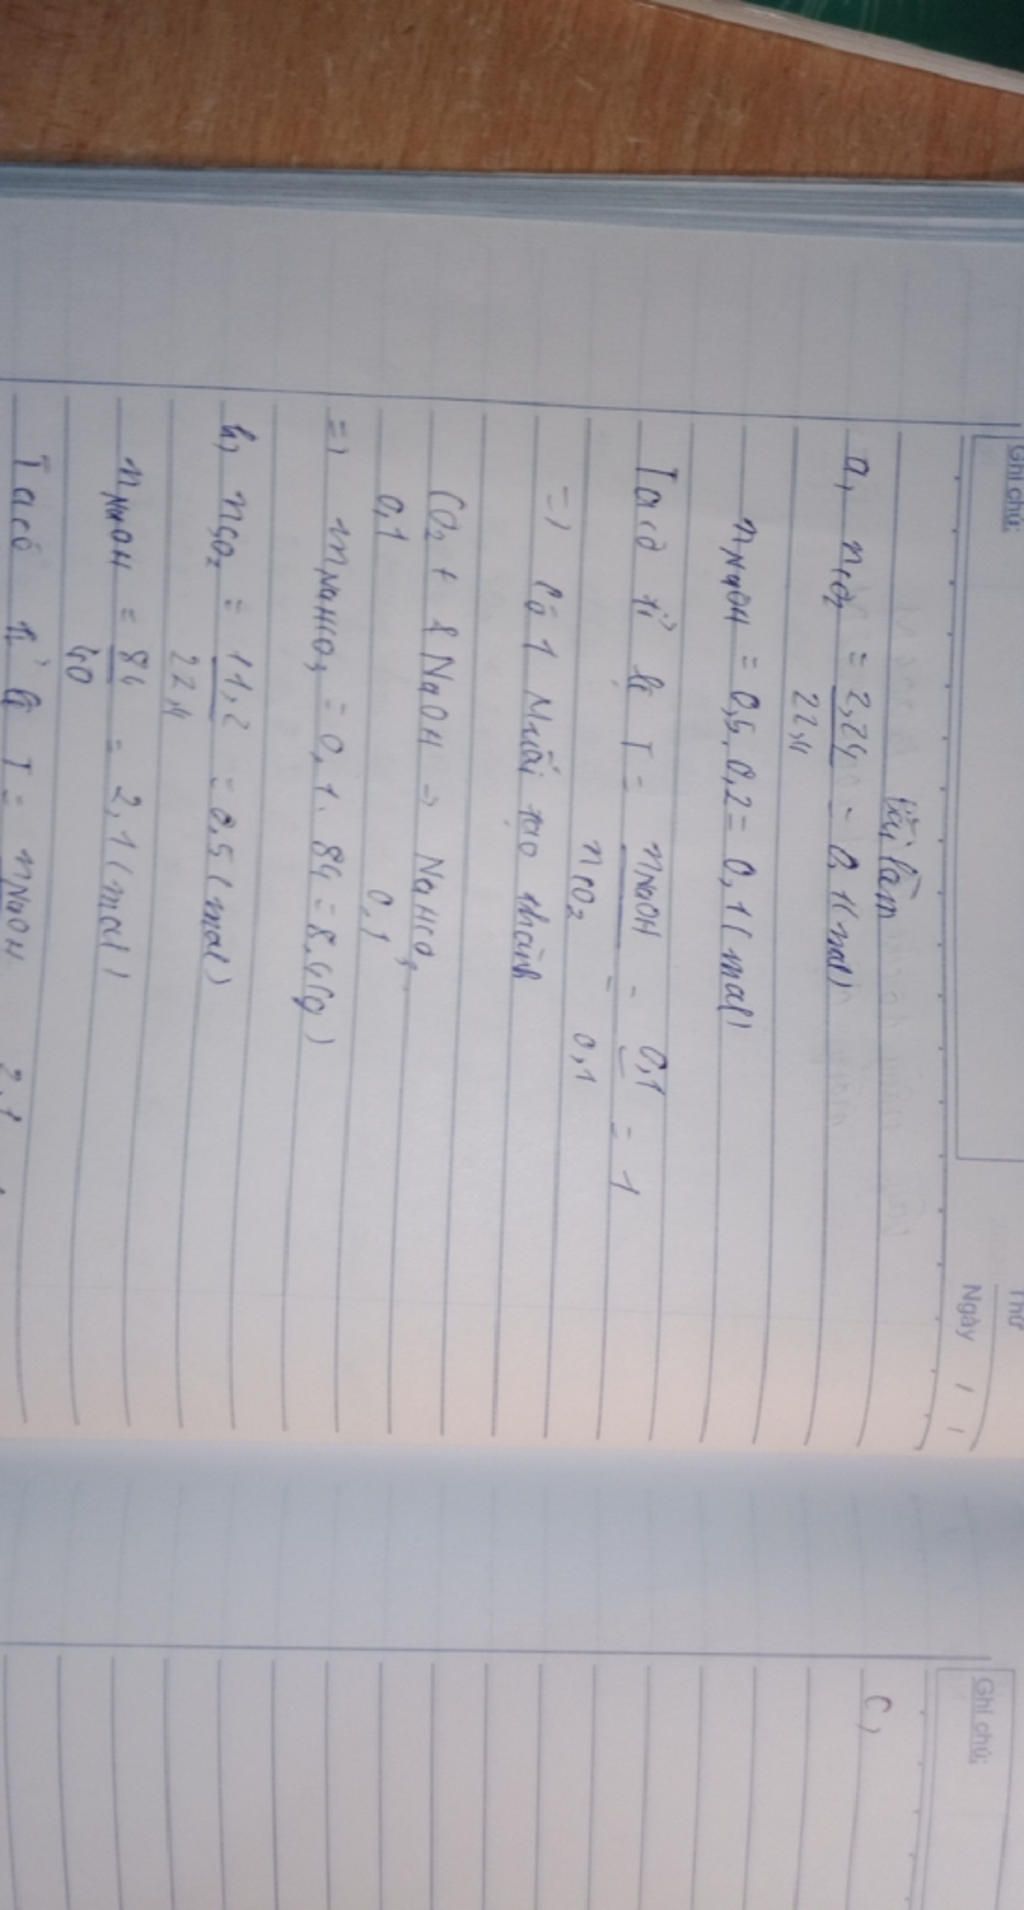 Ghi chú:
Thứ
Ngày / /
Bài làm
a, nCO₂ = 2,24 = 0,1(mol)
22,4
nNaOH = 0,5.0,2 = 0,1(mol)
Ta có tỉ lệ T = nNaOH = 0,1 = 1
nCO₂ = 0,1
=) Có 1 Muối tạo thành
CO₂ + NaOH → NaHCO₃
0,1 0,1
=) mNaHCO₃ = 0,1.84 = 8,4(g)
b, nCO₂ = 11,2 = 0,5(mol)
22,4
nNaOH = 84 = 2,1(mol)
40
Ta có tỉ lệ T = nNaOH 2,1
Ghi chú:
c,